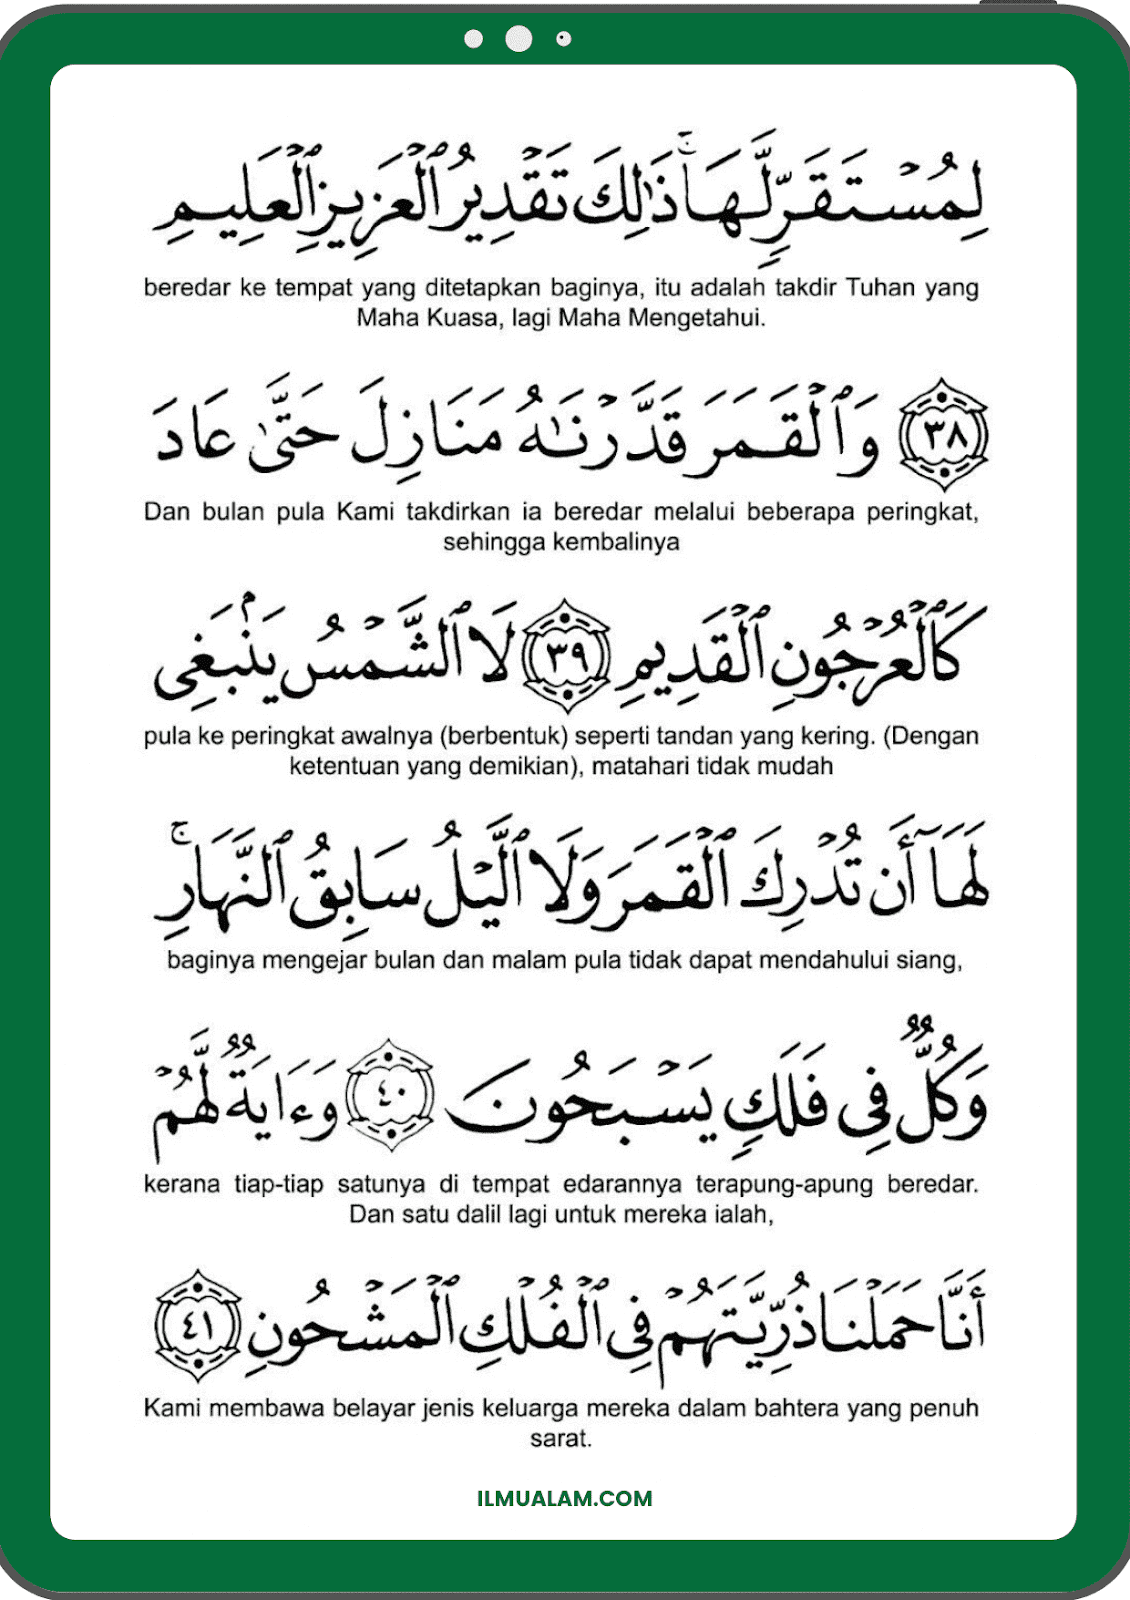 لِمُسْتَقَرٍّ لَّهَا ۚ ذَٰلِكَ تَقْدِيرُ ٱلْعَزِيزِ ٱلْعَلِيمِ
beredar ke tempat yang ditetapkan baginya, itu adalah takdir Tuhan yang
Maha Kuasa, lagi Maha Mengetahui.
٣٨ وَٱلْقَمَرَ قَدَّرْنَـٰهُ مَنَازِلَ حَتَّىٰ عَادَ
Dan bulan pula Kami takdirkan ia beredar melalui beberapa peringkat,
sehingga kembalinya
كَٱلْعُرْجُونِ ٱلْقَدِيمِ ٣٩ لَا ٱلشَّمْسُ يَنۢبَغِى
pula ke peringkat awalnya (berbentuk) seperti tandan yang kering. (Dengan
ketentuan yang demikian), matahari tidak mudah
لَهَآ أَن تُدْرِكَ ٱلْقَمَرَ وَلَا ٱلَّيْلُ سَابِقُ ٱلنَّهَارِ ۚ
baginya mengejar bulan dan malam pula tidak dapat mendahului siang,
وَكُلٌّ فِى فَلَكٍ يَسْبَحُونَ ٤٠ وَءَايَةٌ لَّهُمْ
kerana tiap-tiap satunya di tempat edarannya terapung-apung beredar.
Dan satu dalil lagi untuk mereka ialah,
أَنَّا حَمَلْنَا ذُرِّيَّتَهُمْ فِى ٱلْفُلْكِ ٱلْمَشْحُونِ ٤١
Kami membawa belayar jenis keluarga mereka dalam bahtera yang penuh
sarat.
ILMUALAM.COM